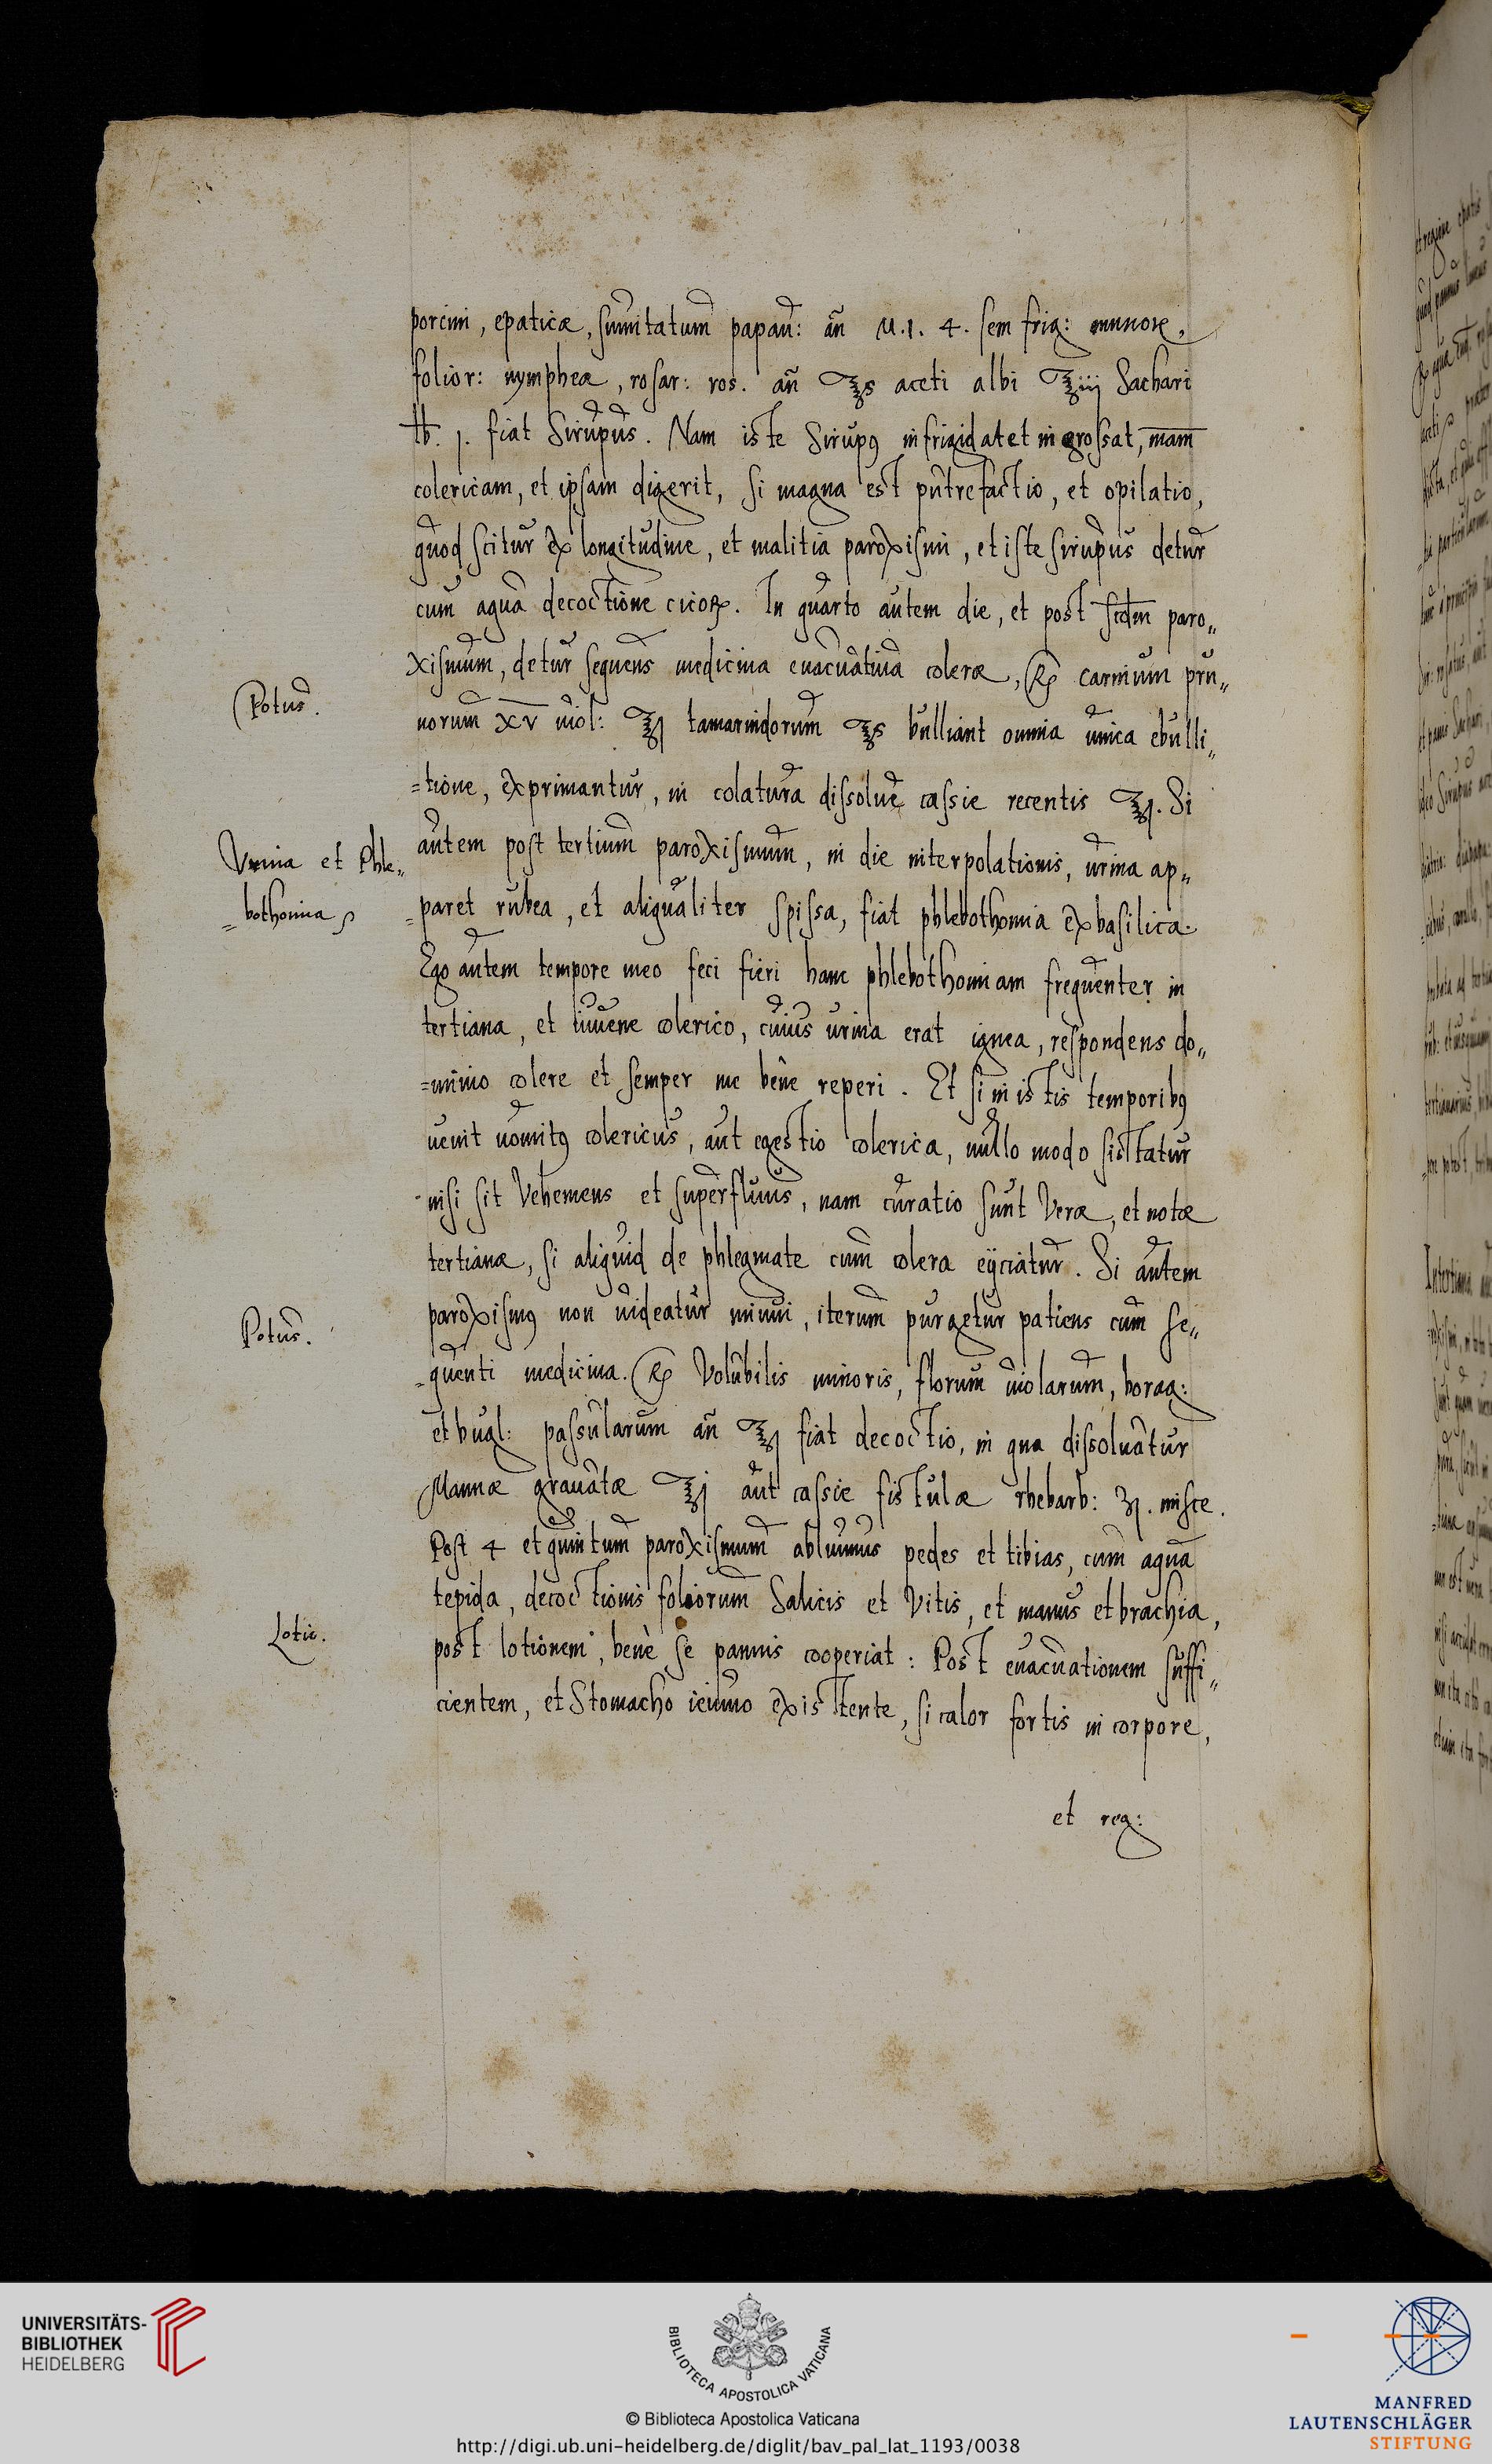 porcini, epaticæ, sum̃itatum papau: añ M.1. 4. sem frig: minoꝝ,
folior: nympheæ, rosar: ros. añ ℥s aceti albi ℥iij Sachari
℔. j. fiat Sirupus. Nam iste Sirupꝰ infrigidat et ingrossat, mam̄
colericam, et ipsam digerit, si magna est putrefactio, et opilatio,
quod scitur ex longitudine, et malitia paroxismi, et iste sirupus detur
cum aqua decoctione cicoꝝ. In quarto autem die, et post scdm̄ paro„
xismum, detur sequens medicina euacuatiua coleræ, ℞ carnium pru„
Potus.
norum xv viol: ℥j tamarindorum ℥s bulliant omnia unica ebulli„
=tione, exprimantur, in colatura dissolue cassie recentis ℥j. Si
autem post tertium paroxismum, in die interpolationis, urina ap„
Vrina et Phle„
=bothomia
=paret rubea, et aliqualiter spissa, fiat phlebothomia ex basilica.
Ego autem tempore meo feci fieri hanc phlebothomiam frequenter in
tertiana, et iuuene colerico, cuius urina erat ignea, respondens do„
=minio colere et semper me bene reperi. Et si in istis temporibꝰ
uenit uomitꝰ colericus, aut egestio colerica, nullo modo sistatur
nisi sit Vehemens et superfluus, nam curatio sunt Veræ, et notæ
tertianæ, si aliquid de phlegmate cum colera eijciatur. Si autem
paroxismꝰ non uideatur minui, iterum purgetur patiens cum se„
Potus.
=quenti medicina. ℞ Volubilis minoris, florum uiolarum, borag:
et bugl: passularum añ ℥j fiat decoctio, in qua dissoluatur
Mannæ grauatæ ℥j aut cassie fistulæ rhebarb: ʒj. misce.
Post 4 et quintum paroxismum abluimus pedes et tibias, cum aqua
tepida, decoctionis foliorum Salicis et Vitis, et manus et brachia,
Lotio.
post lotionem, benè se pannis cooperiat: Post euacuationem suffi„
cientem, et Stomacho ieiuno existente, si calor fortis in corpore,
et reg:
UNIVERSITÄTS-
BIBLIOTHEK
HEIDELBERG
BIBLIOTECA APOSTOLICA VATICANA
© Biblioteca Apostolica Vaticana
http://digi.ub.uni-heidelberg.de/diglit/bav_pal_lat_1193/0038
MANFRED
LAUTENSCHLÄGER
STIFTUNG